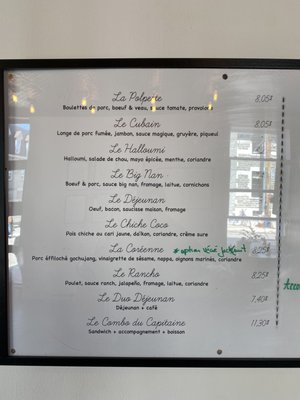 La Polpette 8,05$
Boulettes de porc, boeuf & veau, sauce tomate, provolone
Le Cubain 8,05$
Longe de porc fumée, jambon, sauce magique, gruyère, piqueul
Le Halloumi
Halloumi, salade de chou, mayo épicée, menthe, coriandre
Le Big Nan
Boeuf & porc, sauce big nan, fromage, laitue, cornichons
Le Déjeunan
Oeuf, bacon, saucisse maison, fromage
Le Chiche Coco
Pois chiche au cari jaune, daïkon, coriandre, crème sure
La Coréenne *option végé 8,25$
Porc éffiloché gochujang, vinaigrette de sésame, nappa, oignons marinés, coriandre
Le Rancho 8,25$
Poulet, sauce ranch, jalapeño, fromage, laitue, coriandre
Le Duo Déjeunan 7,40$
Déjeunan + café
Le Combo du Capitaine 11,30$
Sandwich + accompagnement + boisson